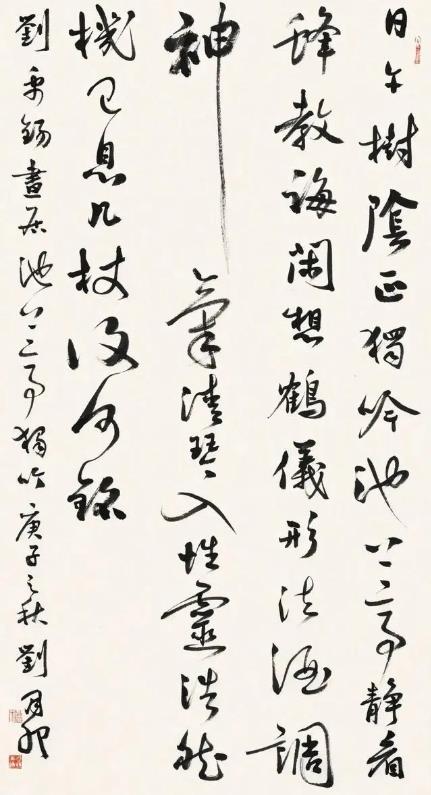 日午樹陰正獨吟池上亭静看
蜂教誨閑想鶴儀形法酒調
神氣清琴入性靈浩然
機已息几杖復何銘
劉禹錫晝居池上亭獨吟庚子之秋劉月卯